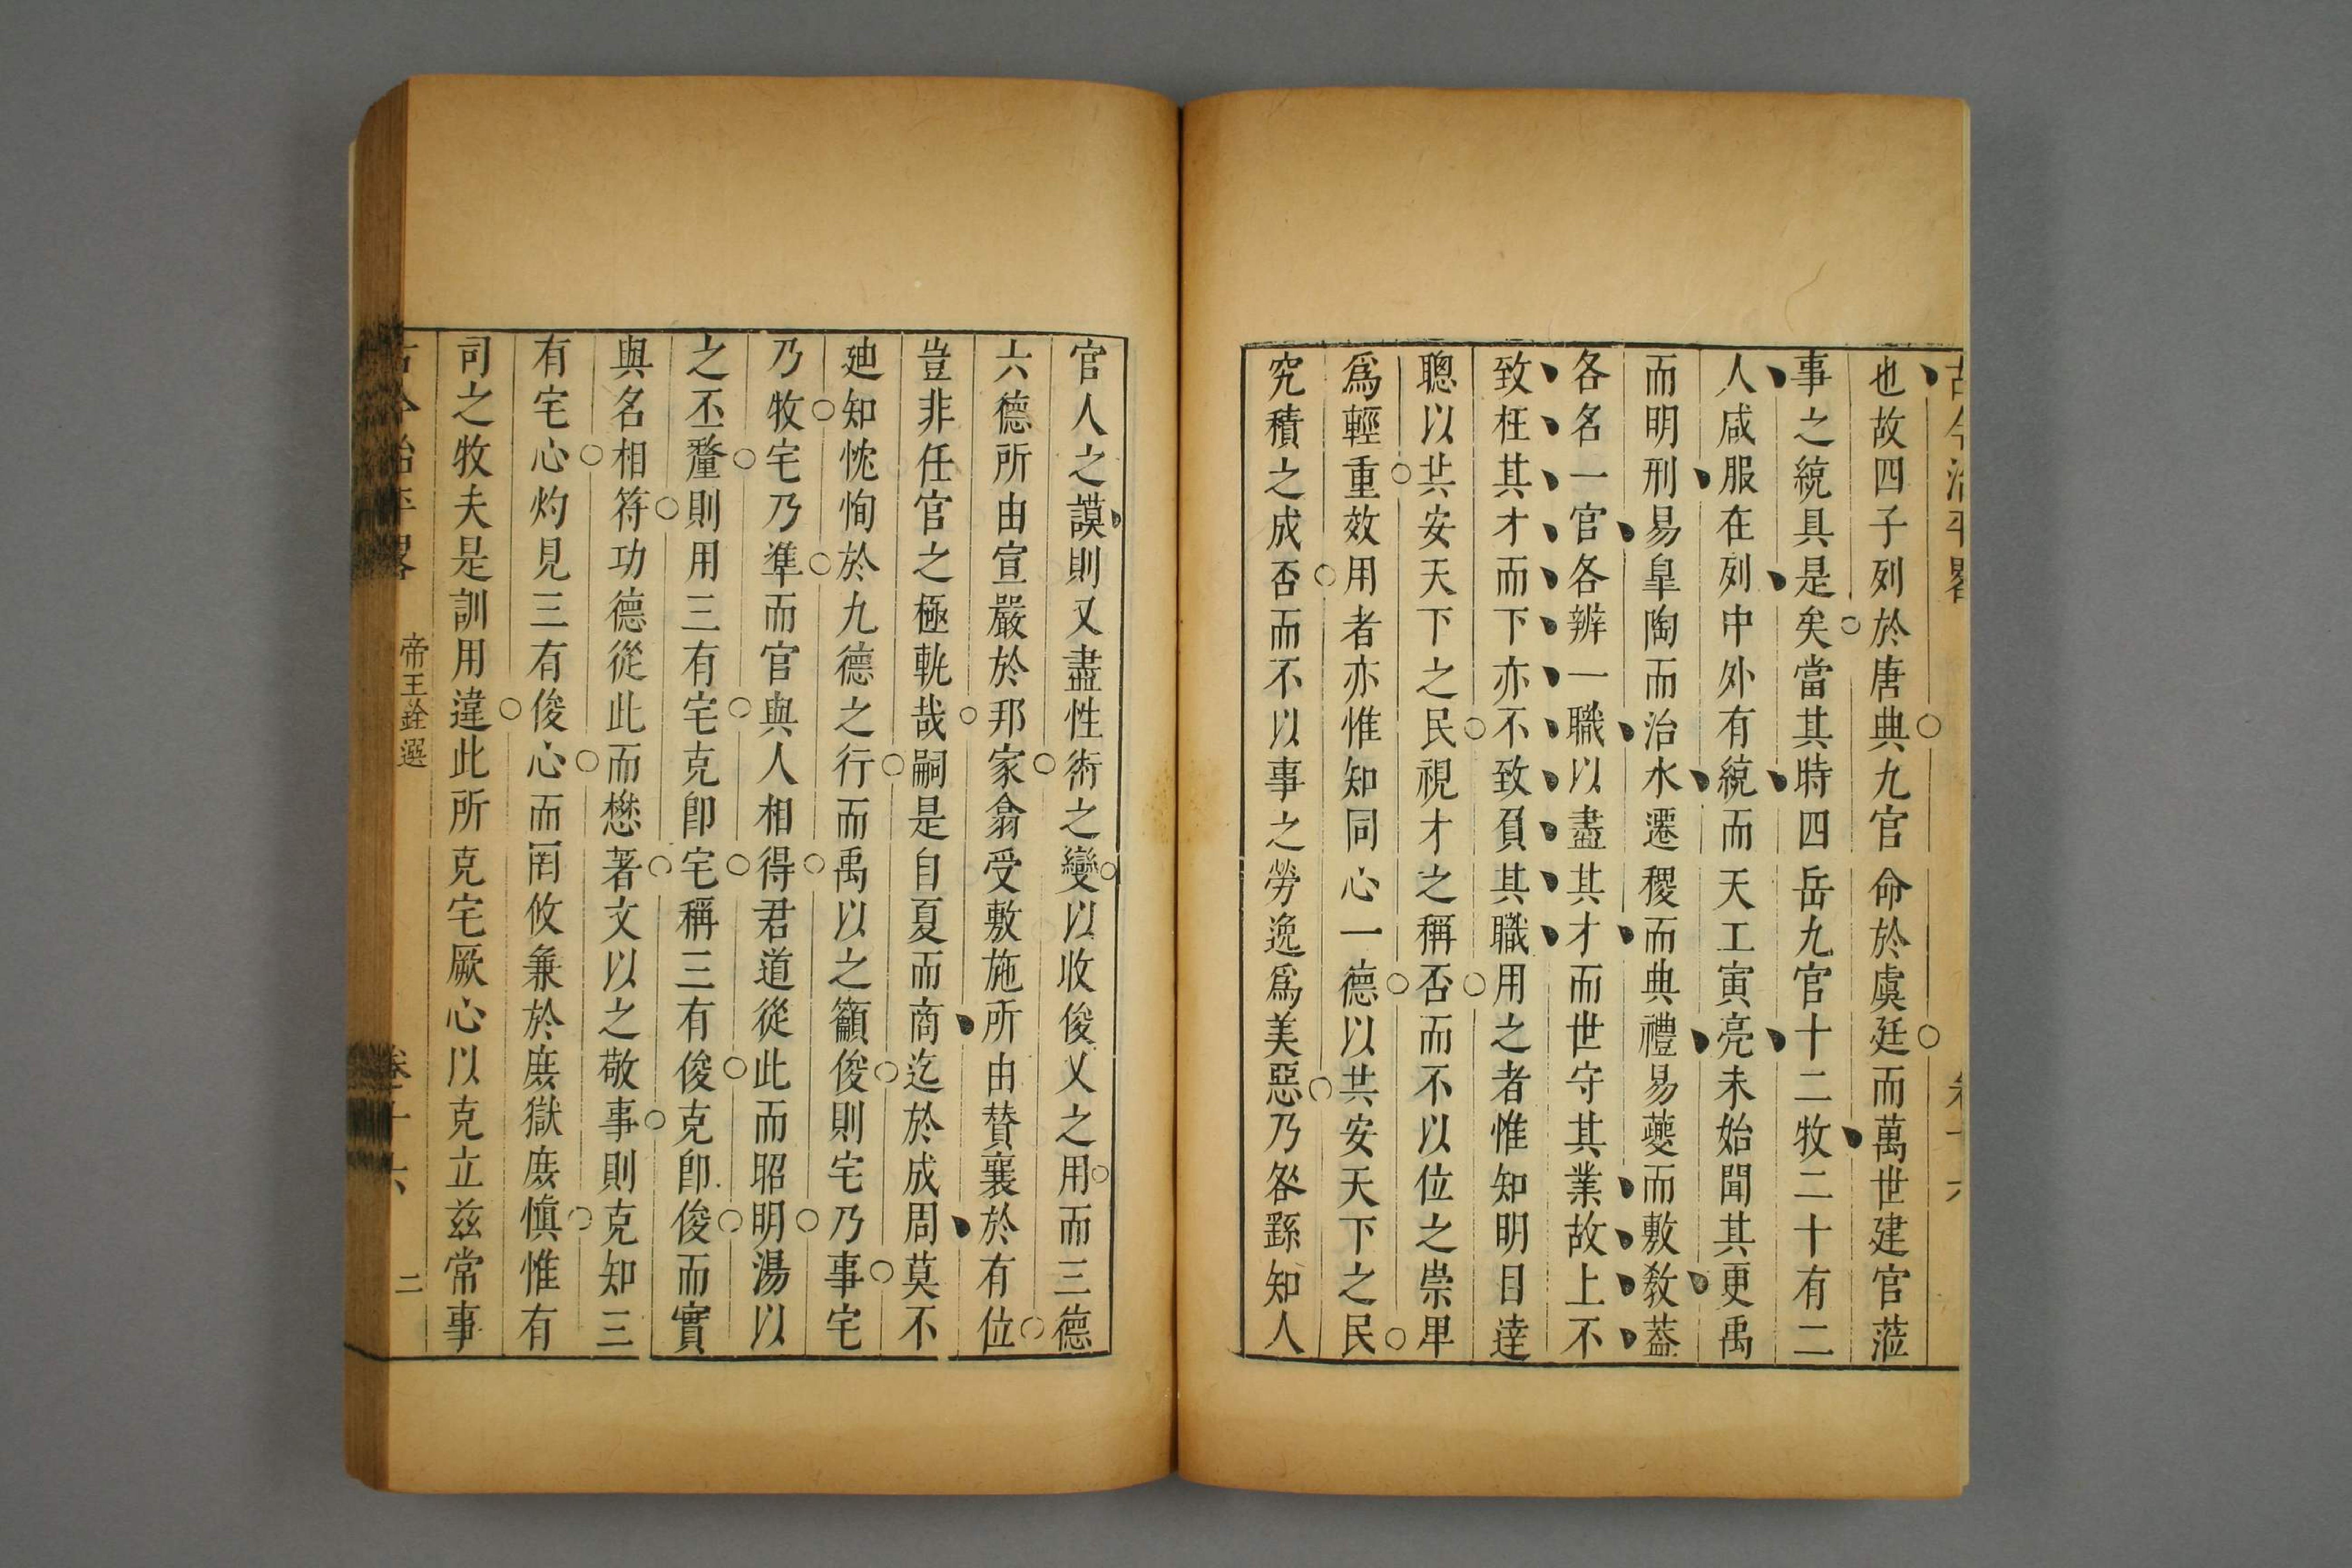 古今治平畧
卷十六
也故四子列於唐典九官命於虞廷而萬世建官蒞
事之統具是矣當其時四岳九官十二牧二十有二
人咸服在列中外有統而天工寅亮未始聞其更禹
而明刑易皐陶而治水遷稷而典禮易夔而敷敎葢
各名一官各辨一職以盡其才而世守其業故上不
致枉其才而下亦不致負其職用之者惟知明目達
聰以共安天下之民視才之稱否而不以位之崇卑
爲輕重效用者亦惟知同心一德以共安天下之民
究積之成否而不以事之勞逸爲美惡乃咎繇知人
官人之謨則又盡性術之變以收俊乂之用而三德
六德所由宣嚴於邦家翕受敷施所由賛襄於有位
豈非任官之極軌哉嗣是自夏而商迄於成周莫不
廸知忱恂於九德之行而禹以之籲俊則宅乃事宅
乃牧宅乃準而官與人相得君道從此而昭明湯以
之丕釐則用三有宅克卽宅稱三有俊克卽俊而實
與名相符功德從此而懋著文以之敬事則克知三
有宅心灼見三有俊心而罔攸兼於庶獄庶愼惟有
司之牧夫是訓用違此所克宅厥心以克立兹常事
古今治平畧
帝王銓選
卷十六
二